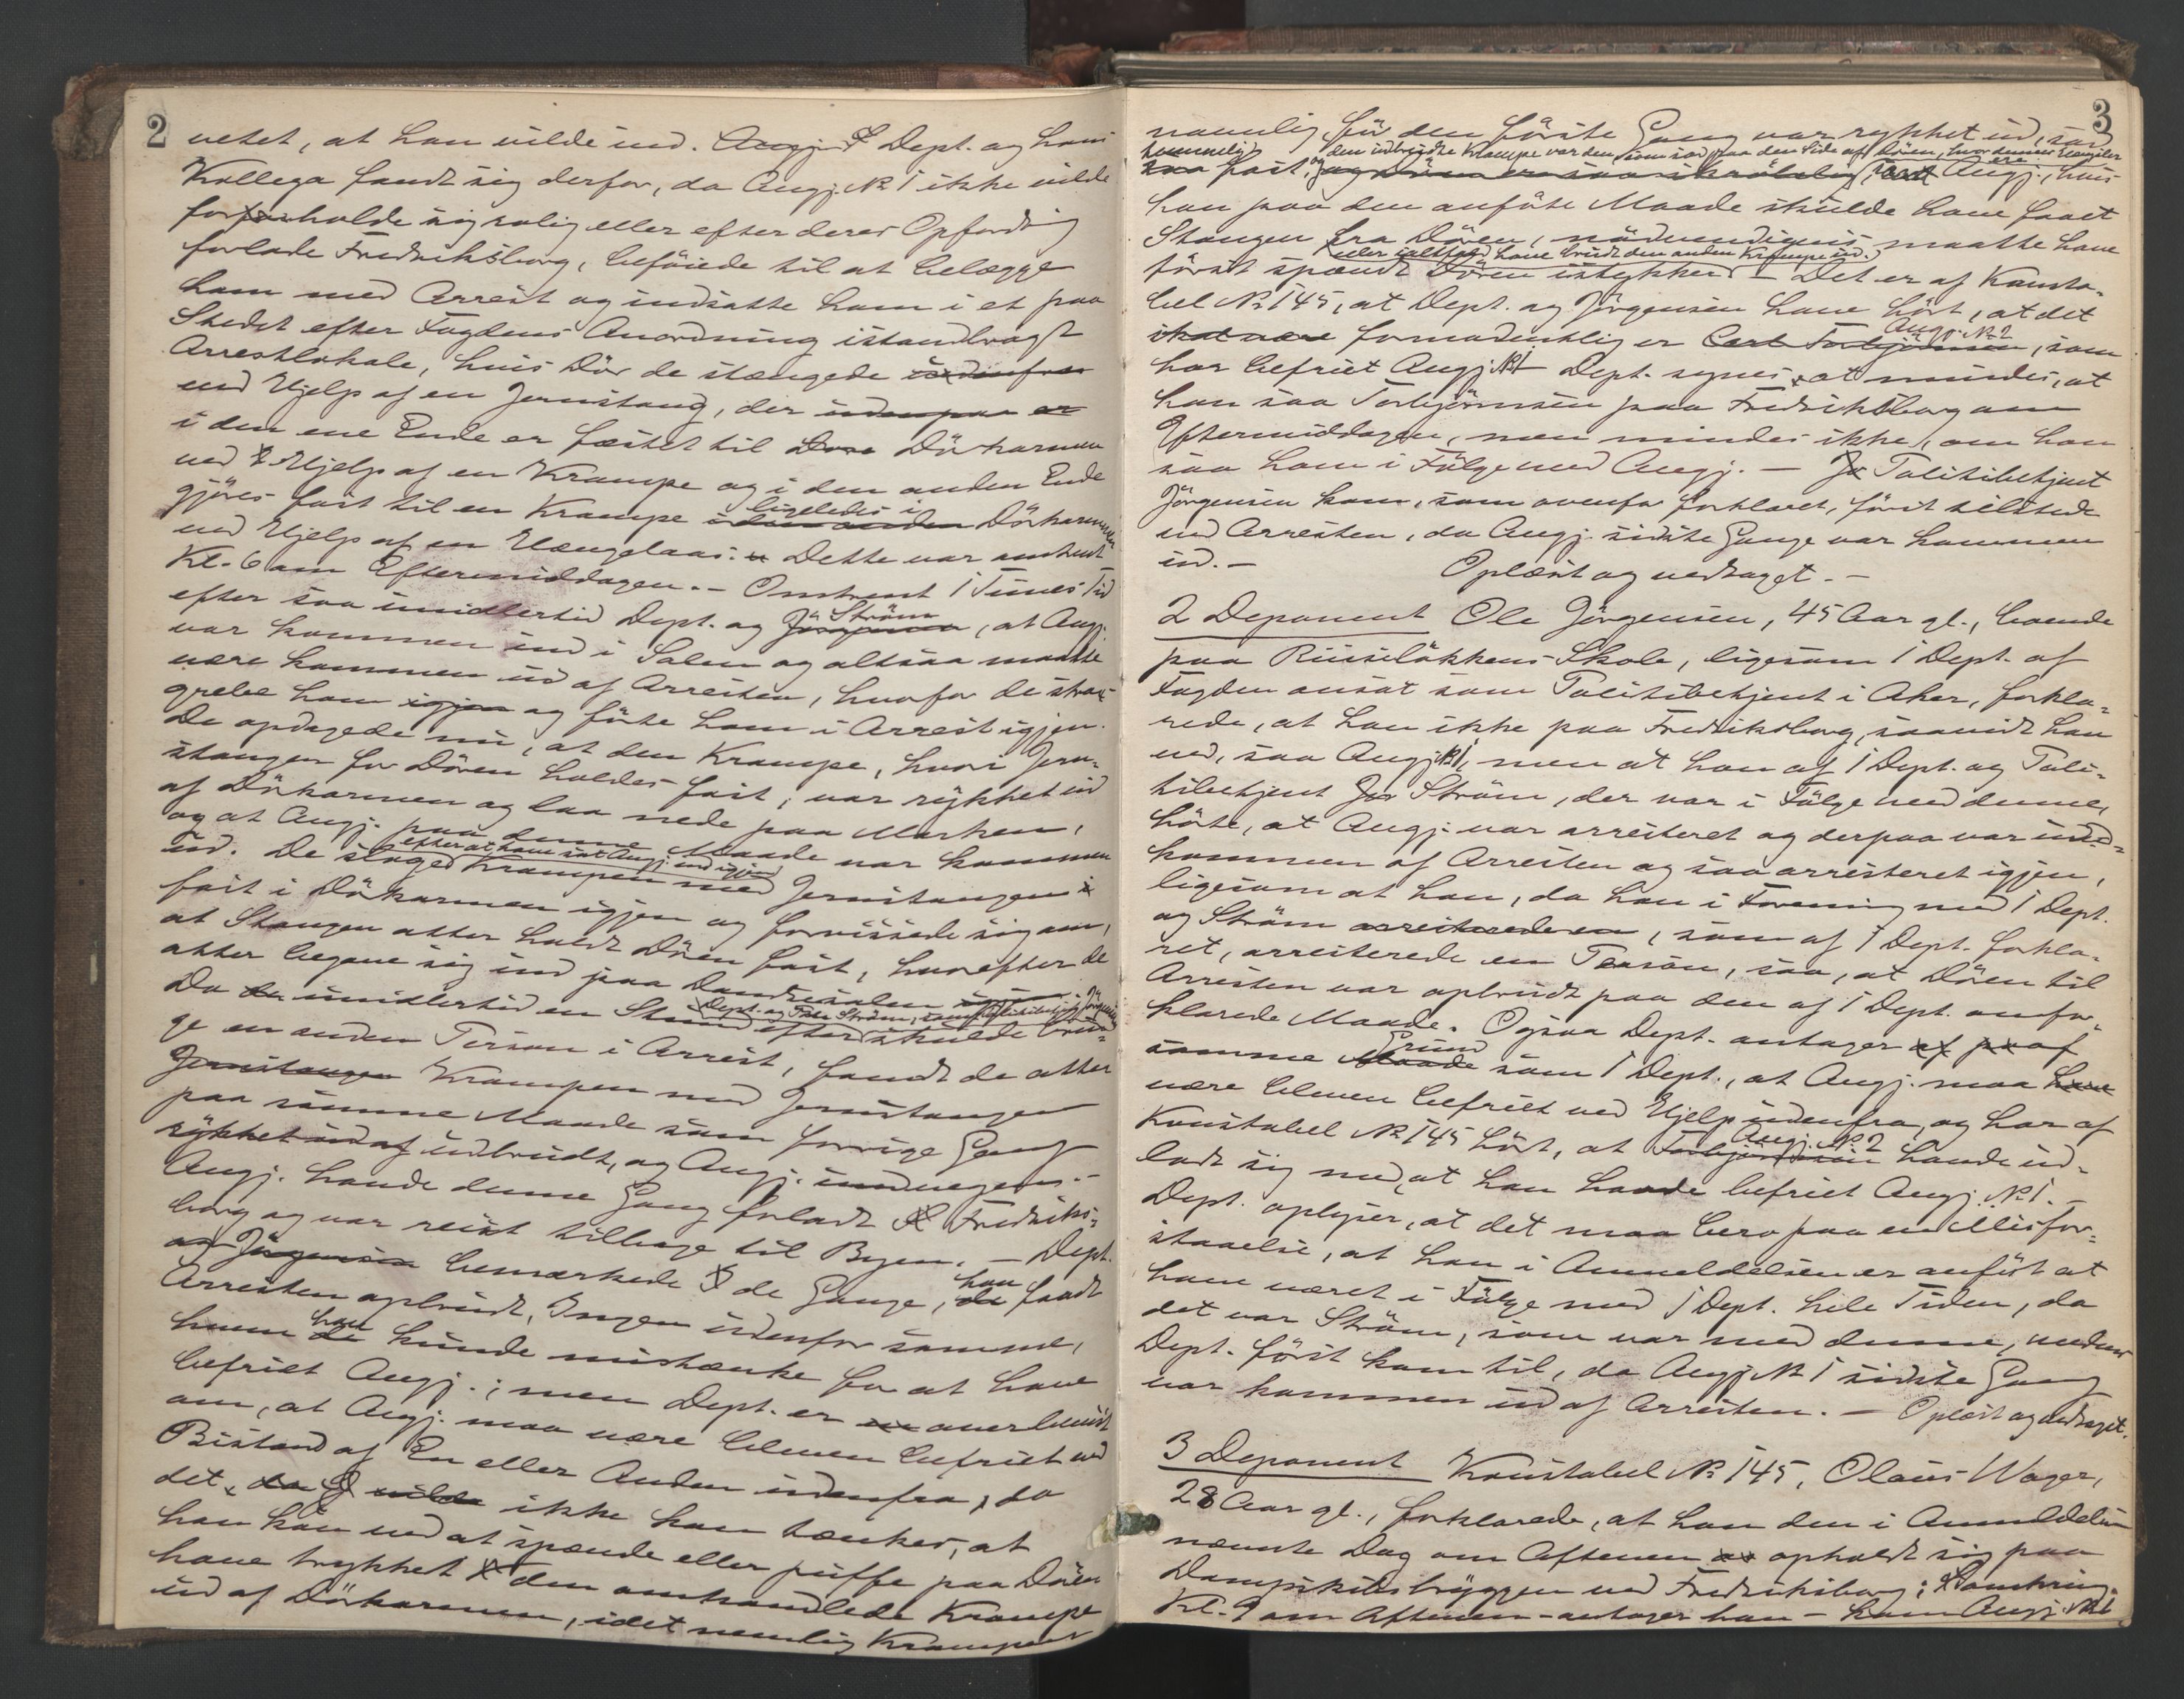 2
vetet, at han vilde ind. Angj. I Dept. og hans
Kollega fandt sig derfor, da Angj. No 1 ikke vilde
forholde sig rolig eller efter deres Opfordrig
forlade Fredriksborg, beföiede til at belægge
ham med Arrest og indsatte ham i et paa
Stedet efter Fogdens Anordning istandbragt
Arrestlokale, hvis Dör de stængede udenfra
ved Hjelp af en Jernstang, der udenpaa er
i den ene Ende er fæstet til Döre Dörkarmen
ved Hjelp af en Krampe og i den anden Ende
ligeledes i
gjöres fast til en Krampe i den anden Dörkarmen
ved Hjelp af en Hængelaas. Dette var omtrent
Kl. 6 om Eftermiddagen. - Omtrent 1 Times Tid
Ström
efter saa imidlertid Dept. og Jörgensen, at Angj.
var kommen ind i Salen og altsaa maatte
være kommen ud af Arresten, hvorfor de strax
grebe ham igjen og förte ham i Arrest igjen.
De opdagede nu, at den Krampe, hvori Jern-
stangen for Dören holdes fast, var rykket ud
af Dörkarmen og laa nede paa Marken,
og at Angj. paa denne Maade var kommen
efter at have sat Angj. ind igjen
ud. De sloges Krampen med Jernstangen
fast i Dörkarmen igjen og forvissede sig om,
at Stangen atter holdt Dören fast, hvorefter de
atter begave sig ind paa Dandsesalen igjen.
Dept. og Ström, samt Politibetj. Jörgensen
Da de imidlertid en Stund efter skulde brin-
ge en anden Person i Arrest, fandt de atter
Jernstangen Krampen med Jernstangen
paa samme Maade som forrige Gang
rykket ud af udbrudt, og Angj. undvegen. -
Angj. havde denne Gang forladt Fredriks-
borg og var reist tilbage til Byen. - Dept.
og Jörgensen bemærkede de Gange, han de fandt
Arresten opbrudt, Ingen udenfor samme,
han
hvem de kunde mistænke for at have
befriet Angj.; men Dept. er overbevist
om, at Angj. maa være bleven befriet ved
Bistand af En eller Anden udenfra, da
det, da vilde ikke kan tænkes, at
han kun ved at spænde eller puffe paa Dören
have trykket den omhandlede Krampe
ud af Dörkarmen, idet nemlig Krampen
3
nemlig för den förste Gang var rykket ud, sad
temmelig den udbrudte Krampe var den som sad paa den Side af Dören, hvor dennes Hængsler ere
saa fast, og Dören er saa skröbelig, at Angj., hvis
han paa den anförte Maade skulde have faaet
Stangen fra Dören, nödvendigvis maatte have
eller ialtfald have brudt den anden Krampe ud.
förist spændt Dören istykker - Det er af Konsta-
bel No 145, at Dept. og Jörgensen have hört, at det
Angj. No 2
skal være formodentlig er Carl Torbjörnsen, som
har befriet Angj. No 1 Dept. synes at mindes, at
han saa Torbjörnsen paa Fredriksborg om
Eftermiddagen, men mindes ikke, om han
saa ham i Fölge med Angj. - Politibetjent
Jörgensen kom, som ovenfor forklaret, först tilstede
ved Arresten, da Angj. sidste Gang var kommen
ud. - Oplæst og vedtaget. -
2 Deponent Ole Jörgensen, 45 Aar gl., boende
paa Ruselökkens Skole, ligesom 1 Dept. af
Fogden ansat som Politibetjent i Aker, forkla-
rede, at han ikke paa Fredriksborg, saavidt han
ved, saa Angj. No 1, men at han af 1 Dept. og Poli-
tibetjent Ström, der var i Fölge med denne,
hörte, at Angj. var arresteret og derpaa var und-
kommen af Arresten og saa arresteret igjen,
ligesom at han, da han i Forening med 1 Dept.
og Ström arresterede en, som af 1 Dept. forkla-
ret, arresterede en Person, saa, at Dören til
Arresten var opbrudt paa den af 1 Dept. omfor-
klarede Maade. Ogsaa Dept. antager af
Grund
samme Maade som 1 Dept., at Angj. maa have
være bleven befriet ved Hjelp udenfra, og har af
Angj. No 2
Konstabel No 145 hört, at Torbjörnsen havde ud-
ladt sig med, at han havde befriet Angj. No 1. -
Dept. oplyser, at det maa bero paa en Misfor-
staaelse, at han i Anmeldelsen er anfört at
have været i Fölge med 1 Dept. hele Tiden, da
det var Ström, som var med denne, medens
Dept. först kom til, da Angj. No 1 sidste Gang
var kommen ud af Arresten. - Oplæst og vedtaget.
3 Deponent Konstabel No 145, Olaus Wager,
28 Aar gl., forklarede, at han den i Anmeldelsen
nævnte Dag om Aftenen opholdt sig paa
Dampskibsbryggen ved Fredriksborg; omkring
Kl. 9 om Aftenen - antager han - kom Angj. No 1